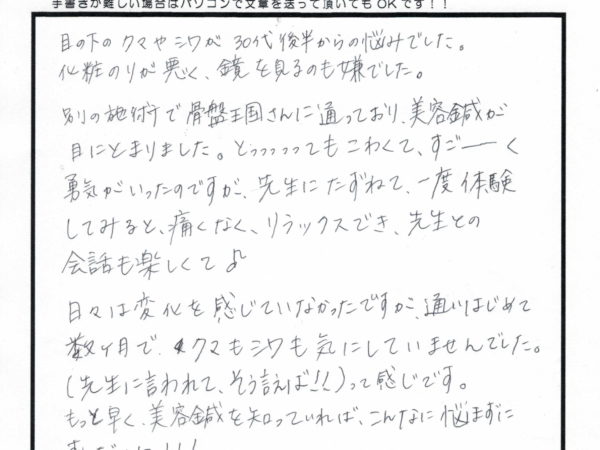 手書きが難しい場合はパソコンで文章を送って頂いてもOKです！！
目の下のクマやシワが30代後半からの悩みでした。
化粧のりが悪く、鏡を見るのも嫌でした。
別の施術で骨盤王国さんに通っており、美容鍼が
目にとまりました。とっっっっってもこわくて、すごーーく
勇気がいったのですが、先生にたずねて、一度体験
してみると、痛くなく、リラックスでき、先生との
会話も楽しくて♪
日々は変化を感じていなかったですが、通いはじめて
数ヶ月で、クマもシワも気にしていませんでした。
(先生に言われて、そう言えば!!)って感じです。
もっと早く、美容鍼を知っていれば、こんなに悩まずに